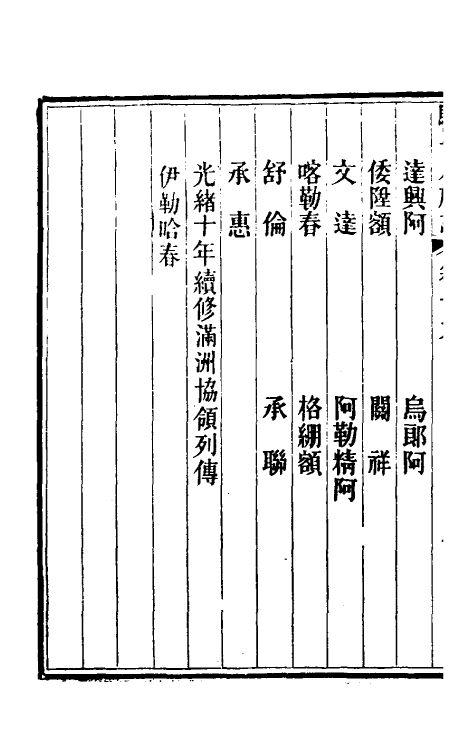 達興阿　烏郎阿
倭陞額　關祥
文達　阿勒精阿
喀勒春　格綳額
舒倫　承聯
承惠
光緒十年續修滿洲協領列傳
伊勒哈春